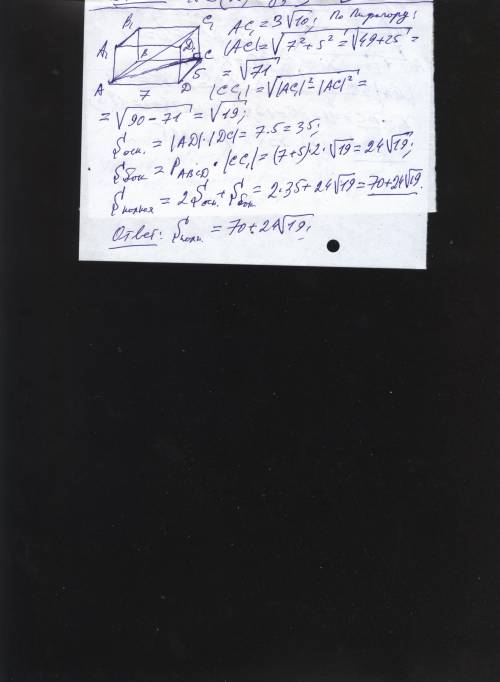 B₁ C₁ AC₁ = 3√10; По Пифагору:
A₁ B D₁ C |AC| = √7² + 5² = √49 + 25 =
A 7 D 5 = √71
|CC₁| = √|AC₁|² - |AC|² =
= √90 - 71 = √19;
Sосн. = |AD|·|DC| = 7·5 = 35;
Sбок = PABCD · |CC₁| = (7+5)2·√19 = 24√19;
Sполная = 2Sосн. + Sбок. = 2·35 + 24√19 = 70+24√19.
Ответ: Sполн. = 70 + 24√19;